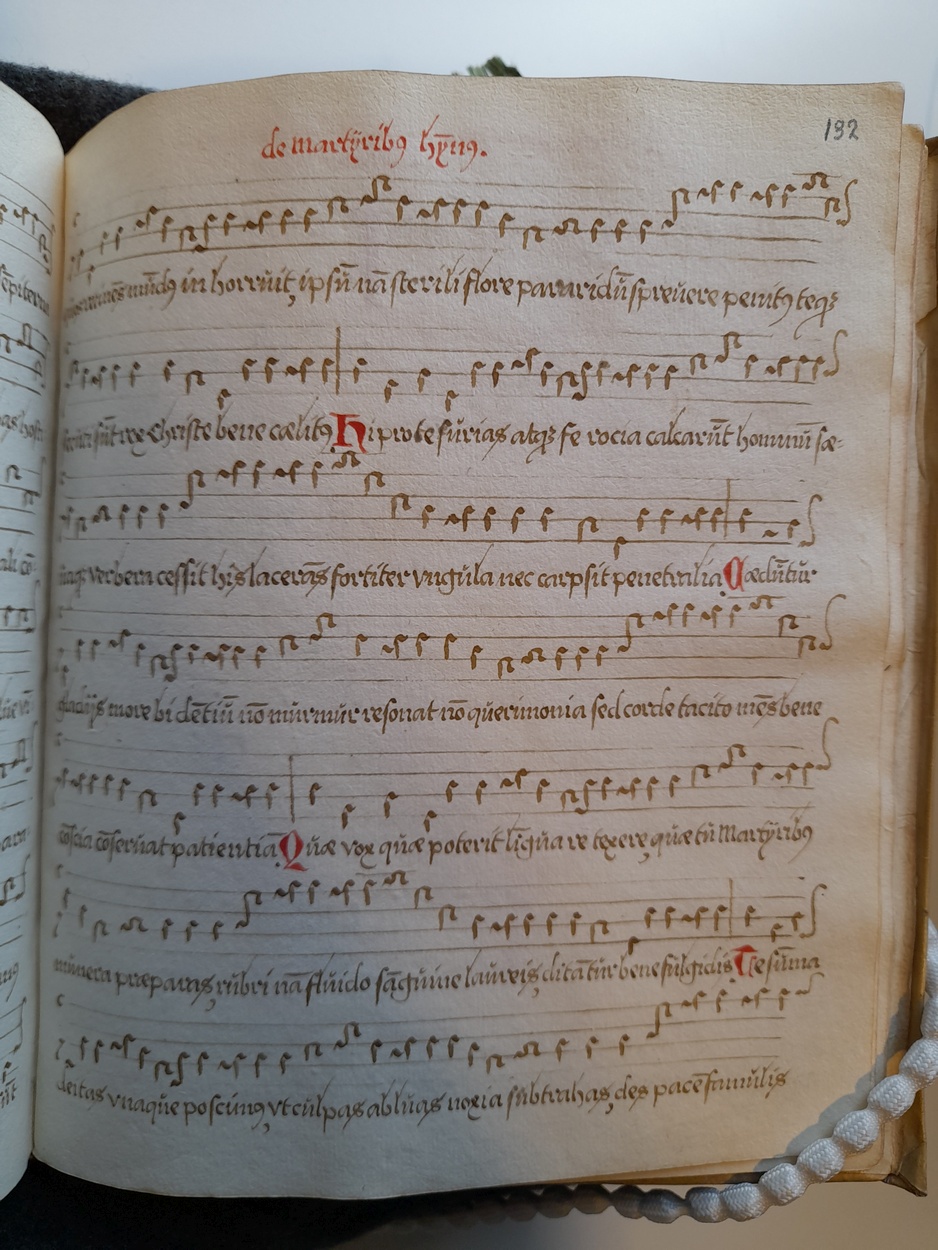 de martÿribꝰ hÿ̄nꝰ.
132
mūdꝰ in horruit, ipsū nā sterili flore pararidū spreuere penitꝰ teqꝫ
sūt rex Christe bene cælitꝰ Hi pro te furias atqꝫ fe rocia calcarūt hominū sæ-
uaqꝫ verbera cessit his lacerās fortiter vngula nec carpsit penetralia. Cædūtur
gladijs more bi dētiū nō murmur resonat nō querimonia sed corde tacito mēs bene
cōscia cōseruat patientiā. Quæ vox quæ poterit līgua re texere, quæ tu Martÿribꝰ
munera præparas, rubri nā fluido sāguine laureis, ditātur bene fulgidis Te sūma
deitas vnaque poscimꝰ, vt culpas abluas noxia subtrahas, des pacē famulis